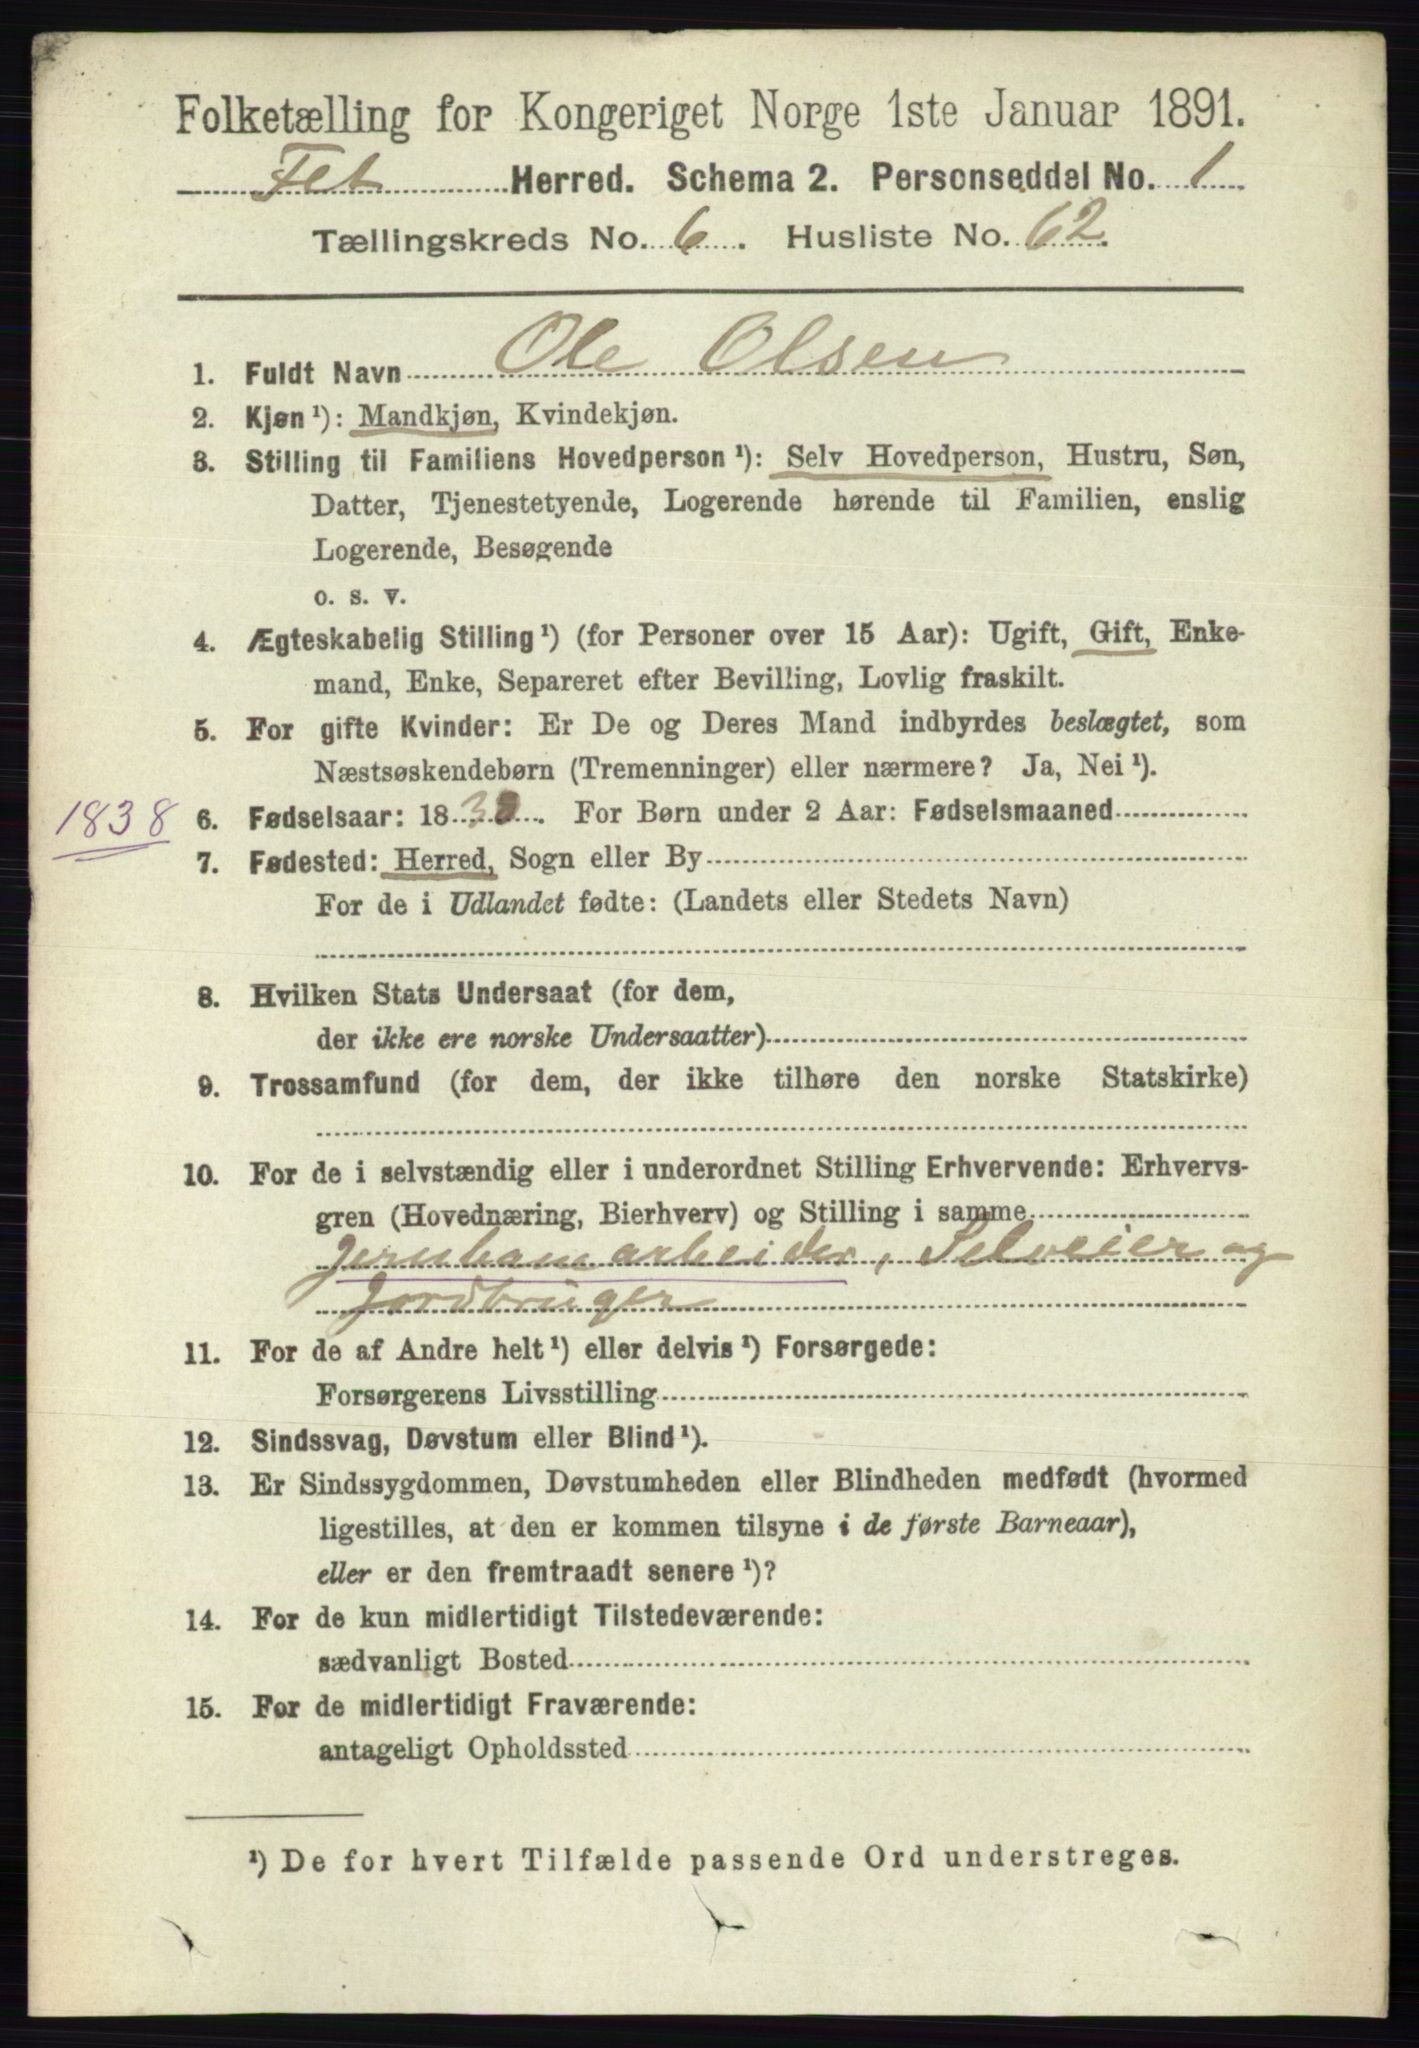 Folketælling for Kongeriget Norge 1ste Januar 1891.
Fet Herred. Schema 2. Personseddel No. 1
Tællingskreds No. 6. Husliste No. 62.
1. Fuldt Navn Ole Olsen
2. Kjøn¹): Mandkjøn, Kvindekjøn.
3. Stilling til Familiens Hovedperson¹): Selv Hovedperson, Hustru, Søn,
Datter, Tjenestetyende, Logerende hørende til Familien, enslig
Logerende, Besøgende
o. s. v.
4. Ægteskabelig Stilling¹) (for Personer over 15 Aar): Ugift, Gift, Enke-
mand, Enke, Separeret efter Bevilling, Lovlig fraskilt.
5. For gifte Kvinder: Er De og Deres Mand indbyrdes beslægtet, som
Næstsøskendebørn (Tremenninger) eller nærmere? Ja, Nei¹).
1838 6. Fødselsaar: 1838. For Børn under 2 Aar: Fødselsmaaned
7. Fødested: Herred, Sogn eller By
For de i Udlandet fødte: (Landets eller Stedets Navn)
8. Hvilken Stats Undersaat (for dem,
der ikke ere norske Undersaatter)
9. Trossamfund (for dem, der ikke tilhøre den norske Statskirke)
10. For de i selvstændig eller i underordnet Stilling Erhvervende: Erhvervs-
gren (Hovednæring, Bierhverv) og Stilling i samme
Jernbanearbeider, Selveier og
Jordbruger
11. For de af Andre helt¹) eller delvis¹) Forsørgede:
Forsørgerens Livsstilling
12. Sindssvag, Døvstum eller Blind¹).
13. Er Sindssygdommen, Døvstumheden eller Blindheden medfødt (hvormed
ligestilles, at den er kommen tilsyne i de første Barneaar),
eller er den fremtraadt senere¹)?
14. For de kun midlertidigt Tilstedeværende:
sædvanligt Bosted
15. For de midlertidigt Fraværende:
antageligt Opholdssted
¹) De for hvert Tilfælde passende Ord understreges.